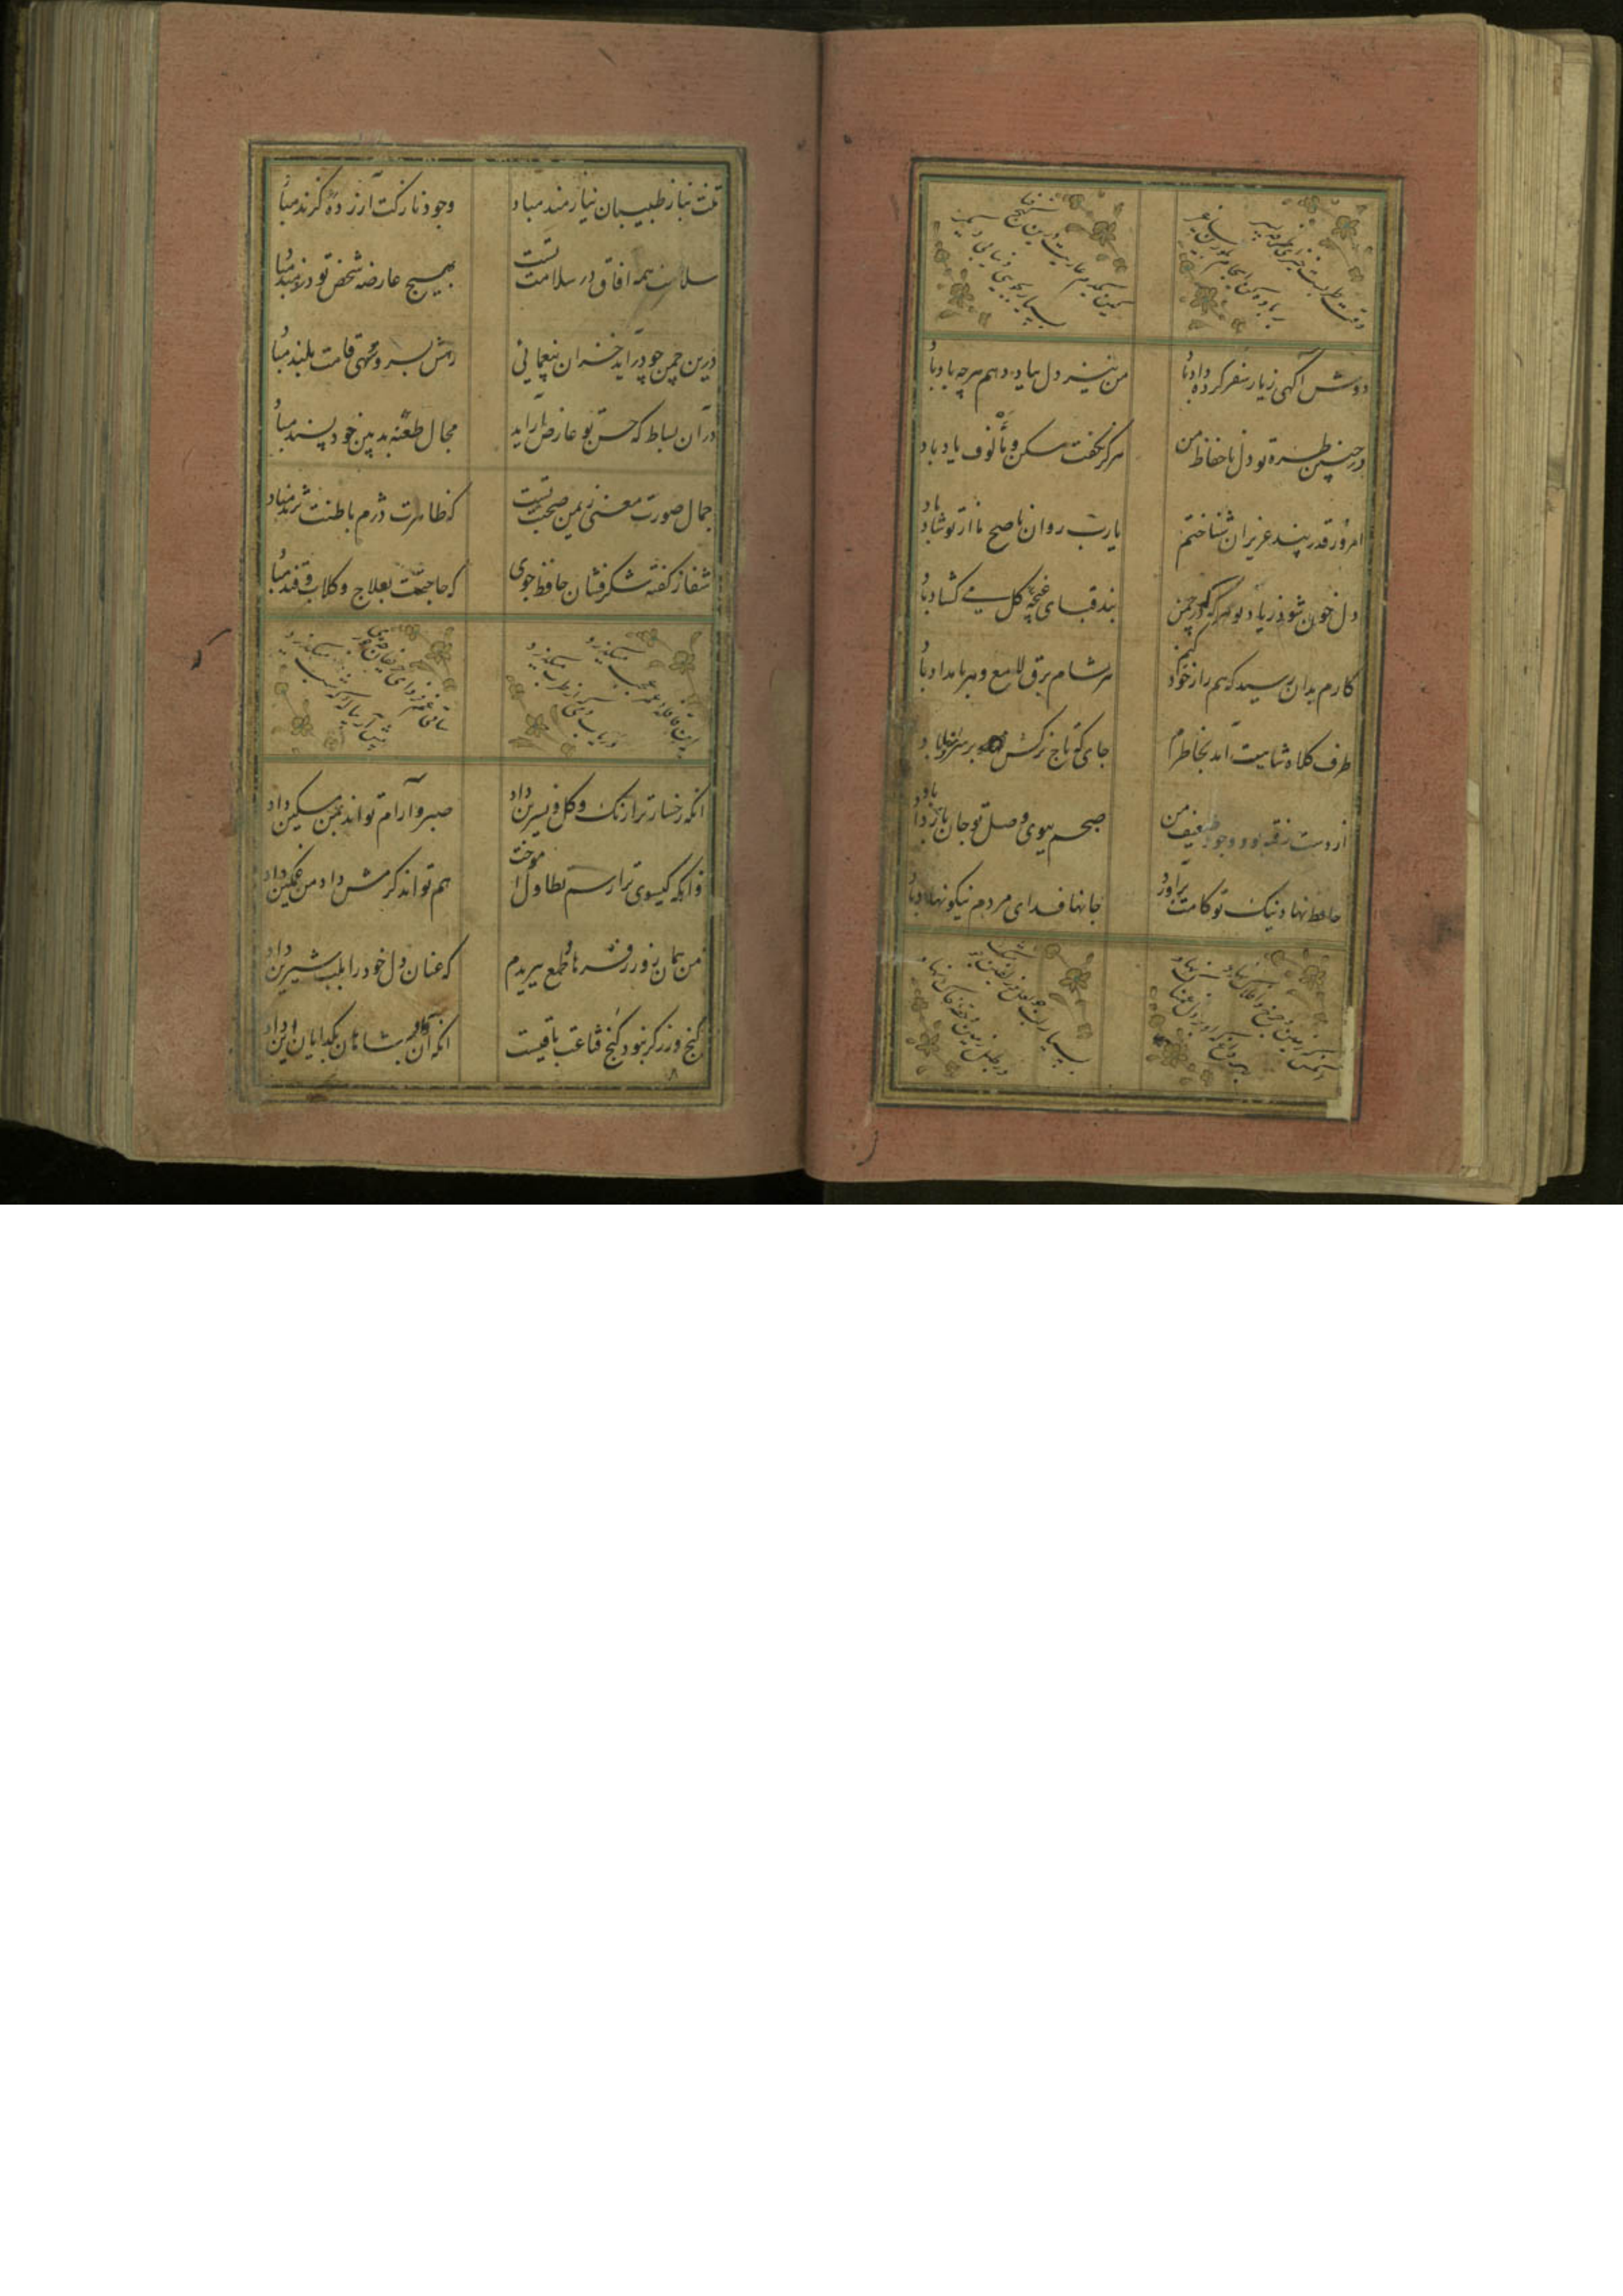 دوش آگهی ز یار سفر کرده داد باد
من نیز دل بباد دهم هرچه باد باد
در چین طره تو دل با حفاظ من
هرگز نگفت مسکن مألوف یاد باد
امروز قدر پند عزیزان شناختم
یارب روان ناصح ما از تو شاد باد
دل خون شود ز یاد تو هرگه که در چمن
بند قبای غنچه گل می کشاد باد
کارم بدان رسید که هم راز خود کنم
هر شام برق لامع و هر بامداد باد
طرف کلاه شاهیت آمد بخاطرم
جای که تاج نرگس بر سر نهاد باد
از دست رفته بود وجود ضعیف من
صبحم ببوی وصل تو جان باز داد باد
حافظ نهاد نیک تو کامت برآورد
جانها فدای مردم نیکو نهاد باد
تنت بناز طبیبان نیازمند مباد
وجود نازکت آزرده گزند مباد
سلامت همه افاق در سلامت تست
بهیچ عارضه شخص تو دردمند مباد
درین چمن چو درآید خزان یغمائی
رهش بسرو سهی قامت بلند مباد
در آن بساط که حسن تو عارض آراید
مجال طعنه بدبین خود پسند مباد
جمال صورت معنی ز یمن صحت تست
که ظاهرت دژم باطنت نژند مباد
شفا ز گفته شکر فشان حافظ جوی
که حاجتت بعلاج و گلاب و قند مباد
این قافله عمر عجب میگذرد
دریاب دمی که از طرب میگذرد
ساقی غم فردای حریفان چه خوری
پیش آر پیاله را که شب میگذرد
انکه رخسار ترا رنگ و گل و نسرین داد
صبر و آرام تواند بمن مسکین داد
وانکه گیسوی ترا رسم تطاول آموخت
هم تواند کرمش داد من غمگین داد
من همان روز ز فرهاد طمع ببریدم
که عنان دل خود را بلب شیرین داد
گنج و زر گر نبود کنج قناعت باقیست
انکه آن داد بشاهان بگدایان این داد